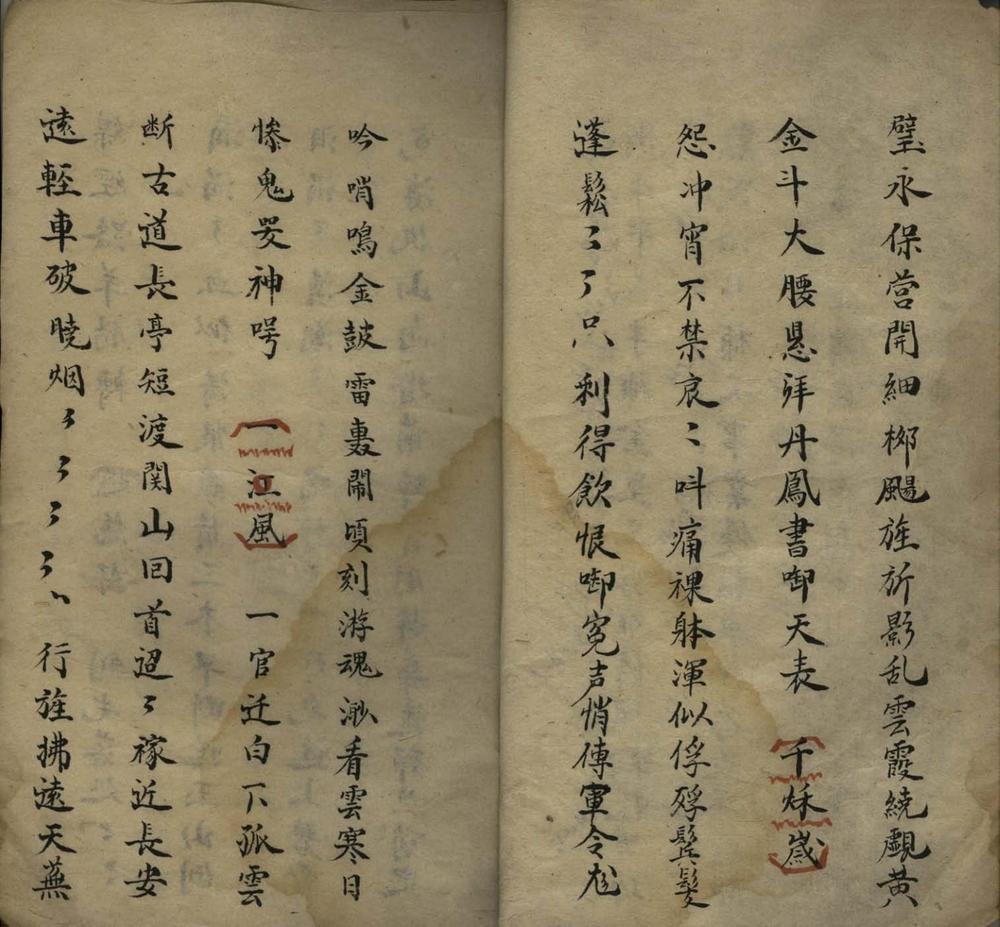 璧永保营開細栁颺旌旂影乱雲霞繞覩黄
金斗大腰悬拜丹鳳書啣天表 千秌歲
怨冲宵不禁哀〻呌痛裸躰渾似俘殍髩髮
蓬鬆〻〻只利得飲恨啣寃声悄傳軍令
吟哨鳴金皷雷轟閙頃刻游魂渺看雲寒日
惨鬼哭神咢 一江風 一官迁白下孤雲
断古道長亭短渡関山回首迢〻稼近長安
遠輕車破曉烟〻〻〻〻〻行旌拂遠天蕪